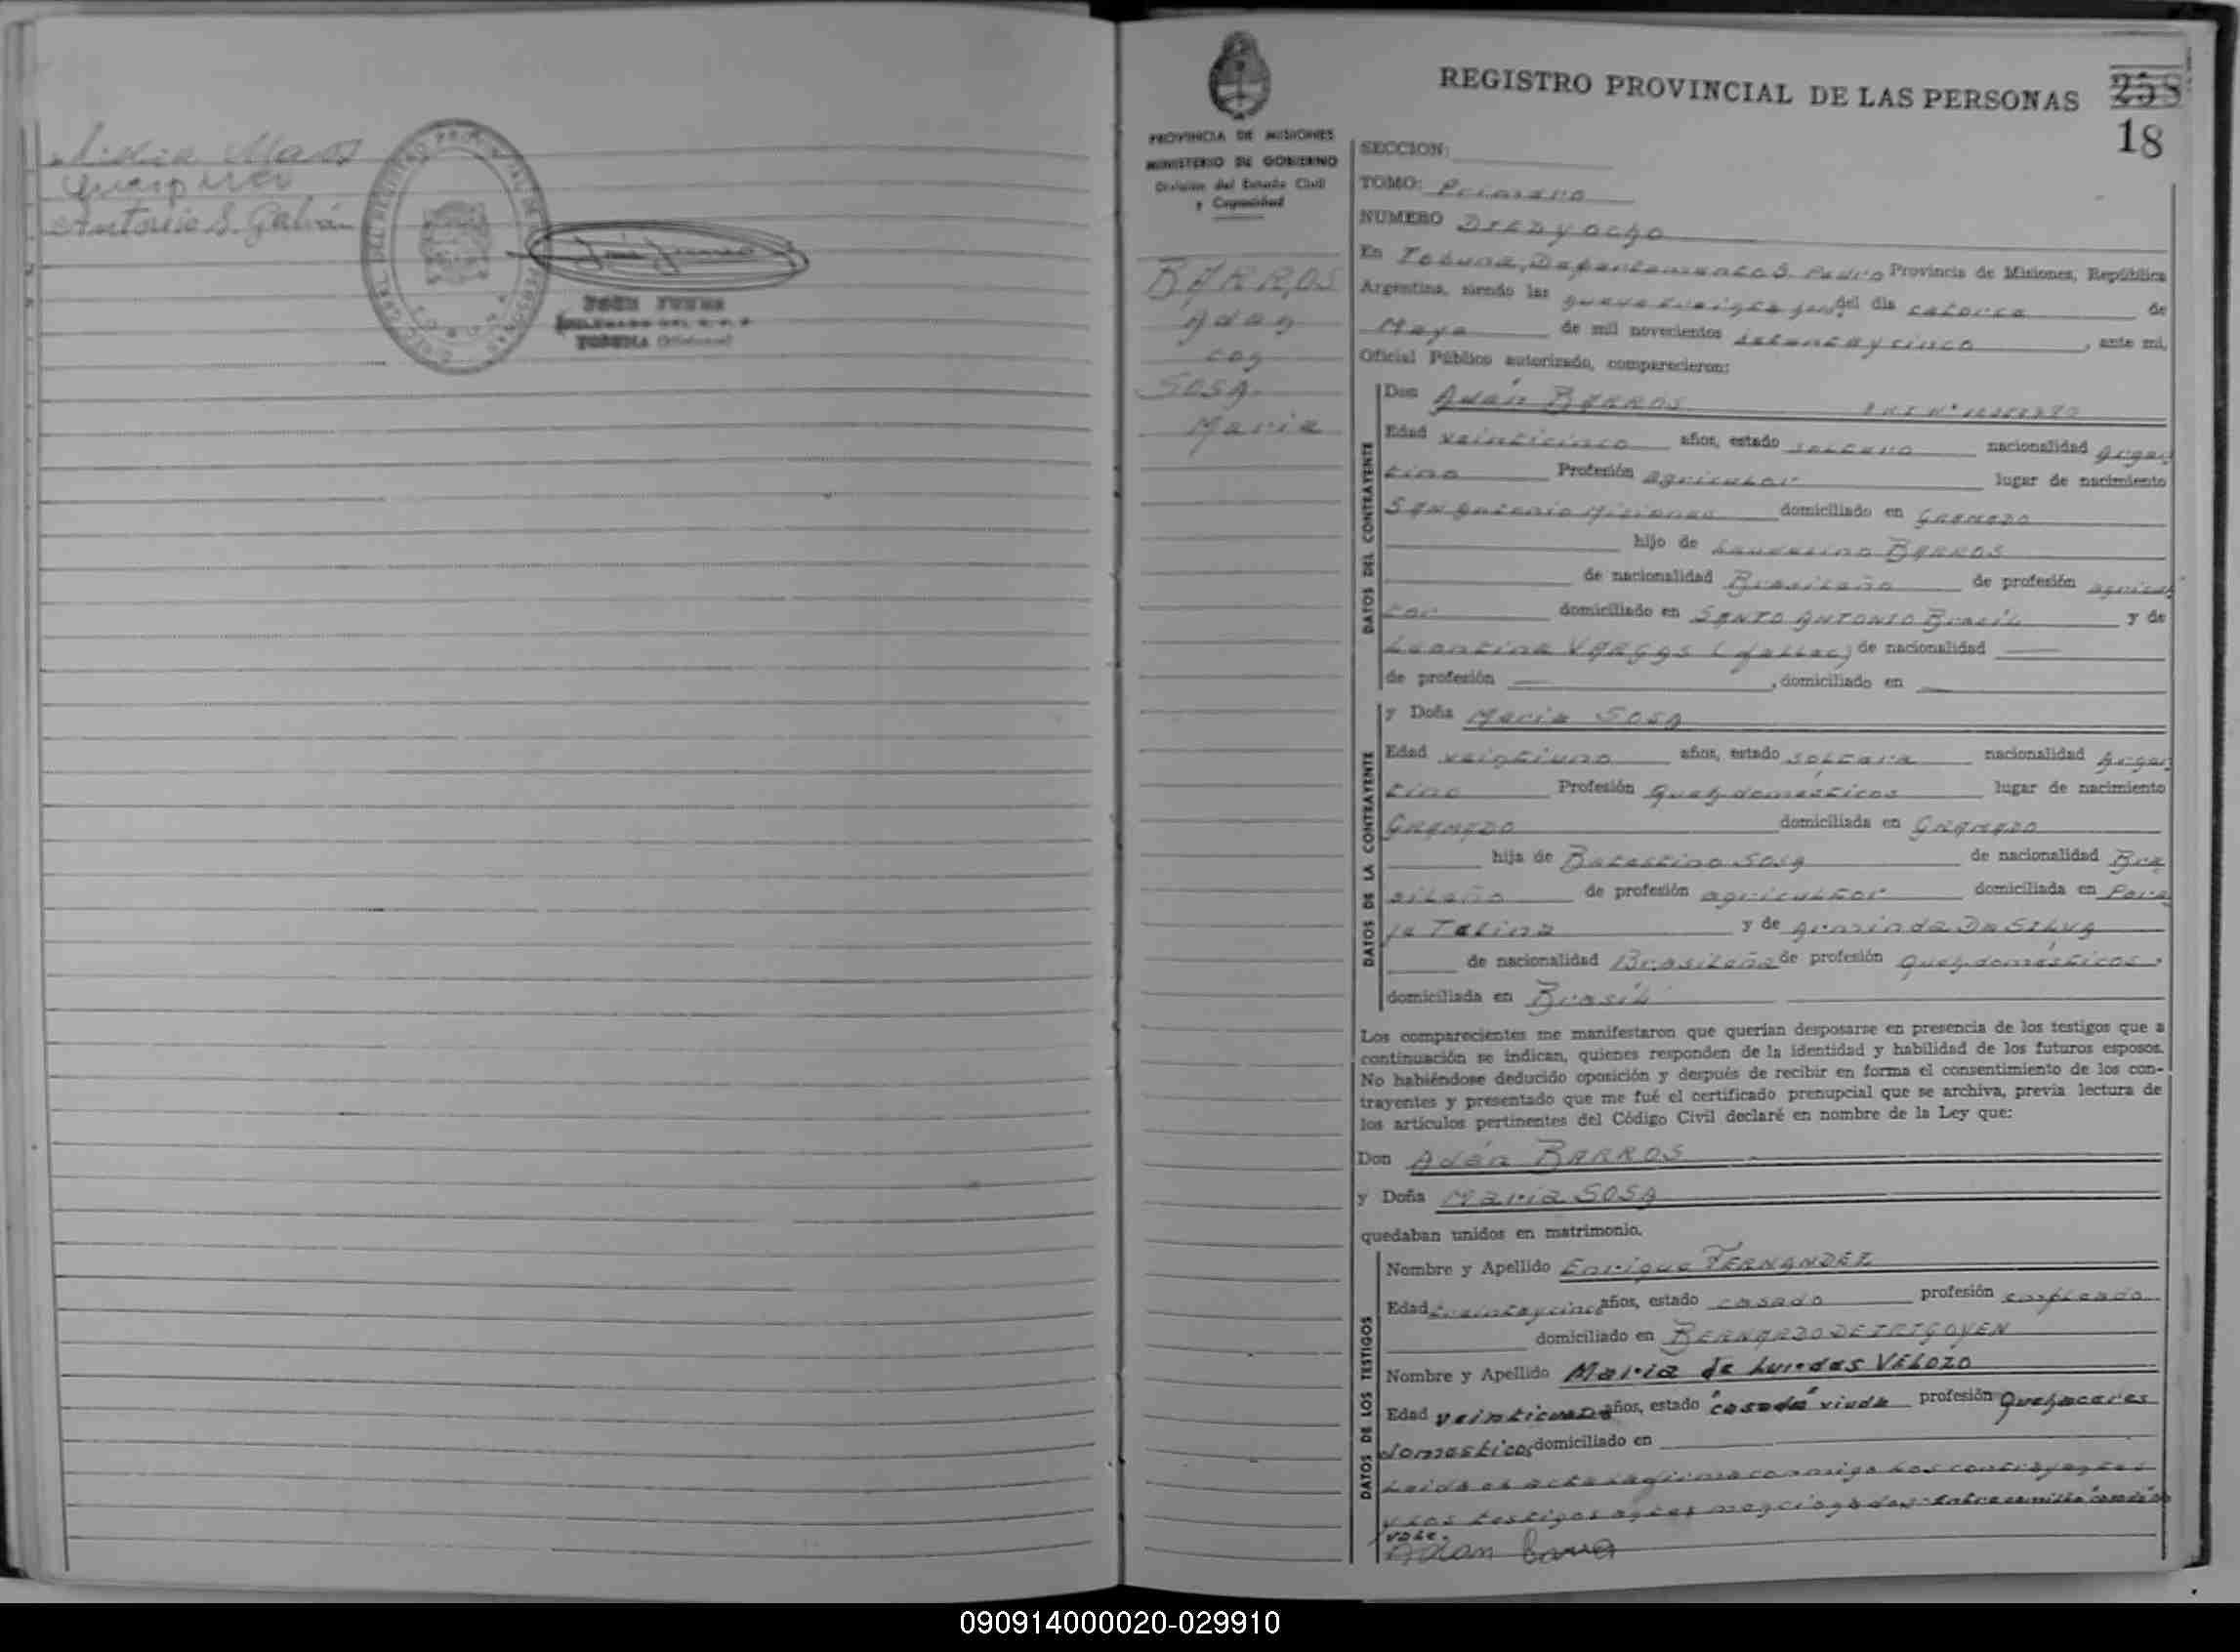 Antonio S. Galván
REGISTRO PROVINCIAL DE LAS PERSONAS
258
18
PROVINCIA DE MISIONES
MINISTERIO DE GOBIERNO
División del Estado Civil
y Capacidad
BARROS
Adan
con
SOSA
Maria
SECCION:
TOMO: Primero
NUMERO Diez y ocho
En Tobuna, Departamento S. Pedro Provincia de Misiones, República
Argentina, siendo las del día catorce de
Mayo de mil novecientos setenta y cinco, ante mi,
Oficial Público autorizado, comparecieron:
DATOS DEL CONTRAYENTE
Don Adán BARROS
Edad veinticinco años, estado soltero nacionalidad Argen
tino Profesión agricultor lugar de nacimiento
San Antonio Misiones domiciliado en GRAMADO
hijo de BARROS
de nacionalidad Brasileño de profesión agricul
tor domiciliado en SANTO ANTONIO Brasil y de
Leontina VARGAS de nacionalidad
de profesión , domiciliado en
DATOS DE LA CONTRAYENTE
y Doña Maria SOSA
Edad veintiuno años, estado soltera nacionalidad Argen
tina Profesión Queh. domesticos lugar de nacimiento
GRAMADO domiciliada en GRAMADO
hija de SOSA de nacionalidad Bra
sileño de profesión agricultor domiciliada en Para
je y de DA SILVA
de nacionalidad Brasileña de profesión Queh. domésticos,
domiciliada en Brasil
Los comparecientes me manifestaron que querían desposarse en presencia de los testigos que a
continuación se indican, quienes responden de la identidad y habilidad de los futuros esposos.
No habiéndose deducido oposición y después de recibir en forma el consentimiento de los con-
trayentes y presentado que me fué el certificado prenupcial que se archiva, previa lectura de
los artículos pertinentes del Código Civil declaré en nombre de la Ley que:
Don Adán BARROS
y Doña Maria SOSA
quedaban unidos en matrimonio.
DATOS DE LOS TESTIGOS
Nombre y Apellido Enrique FERNANDEZ
Edad treintaycinco años, estado casado profesión empleado
domiciliado en BERNARDO DE IRIGOYEN
Nombre y Apellido Maria de Lurdes VELOZO
Edad años, estado "casada" viuda profesión Quehaceres
domesticos domiciliado en
Leida el acta la firman conmigo los contrayentes
y los testigos antes mencionados
vale.
Adan
090914000020-029910